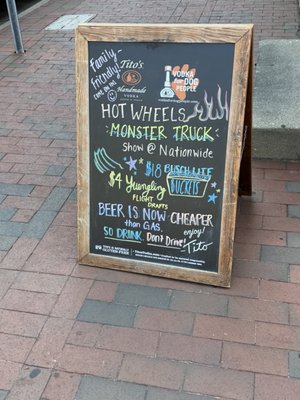 Family-
Friendly!
COME ON IN!
Tito's
Handmade
VODKA
VODKA
FOR DOG
PEOPLE
HOT WHEELS
MONSTER TRUCK
Show @ Nationwide
$18 BUSCH LITE
BUCKETS
$4 Yuengling
FLIGHT
DRAFTS
BEER IS NOW CHEAPER
than GAS.
SO DRINK, Don't Drive!
enjoy!
Tito